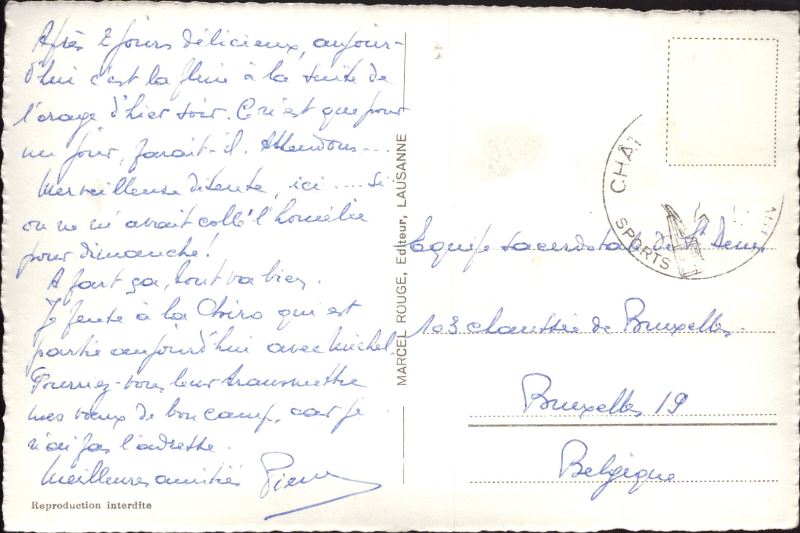 Après 2 jours délicieux, aujour-
d'hui c'est la pluie à la suite de
l'orage d'hier soir. Ce n'est que pour
un jour, paraît-il. Attendons...
Merveilleuse détente, ici .... Si
on ne m'avait collé l'homélie
pour dimanche!
A part ça, tout va bien.
Je pense à la Chiro qui est
partie aujourd'hui avec Michel.
Pourriez-vous leur transmettre
mes vœux de bon camp, car je
n'ai pas l'adresse.
Meilleures amitiés Pierre
Reproduction interdite
MARCEL ROUGE, Editeur, LAUSANNE
CHAT
SPORTS
Equipe sacerdotale de St Denis
103 chaussée de Bruxelles
Bruxelles 19
Belgique